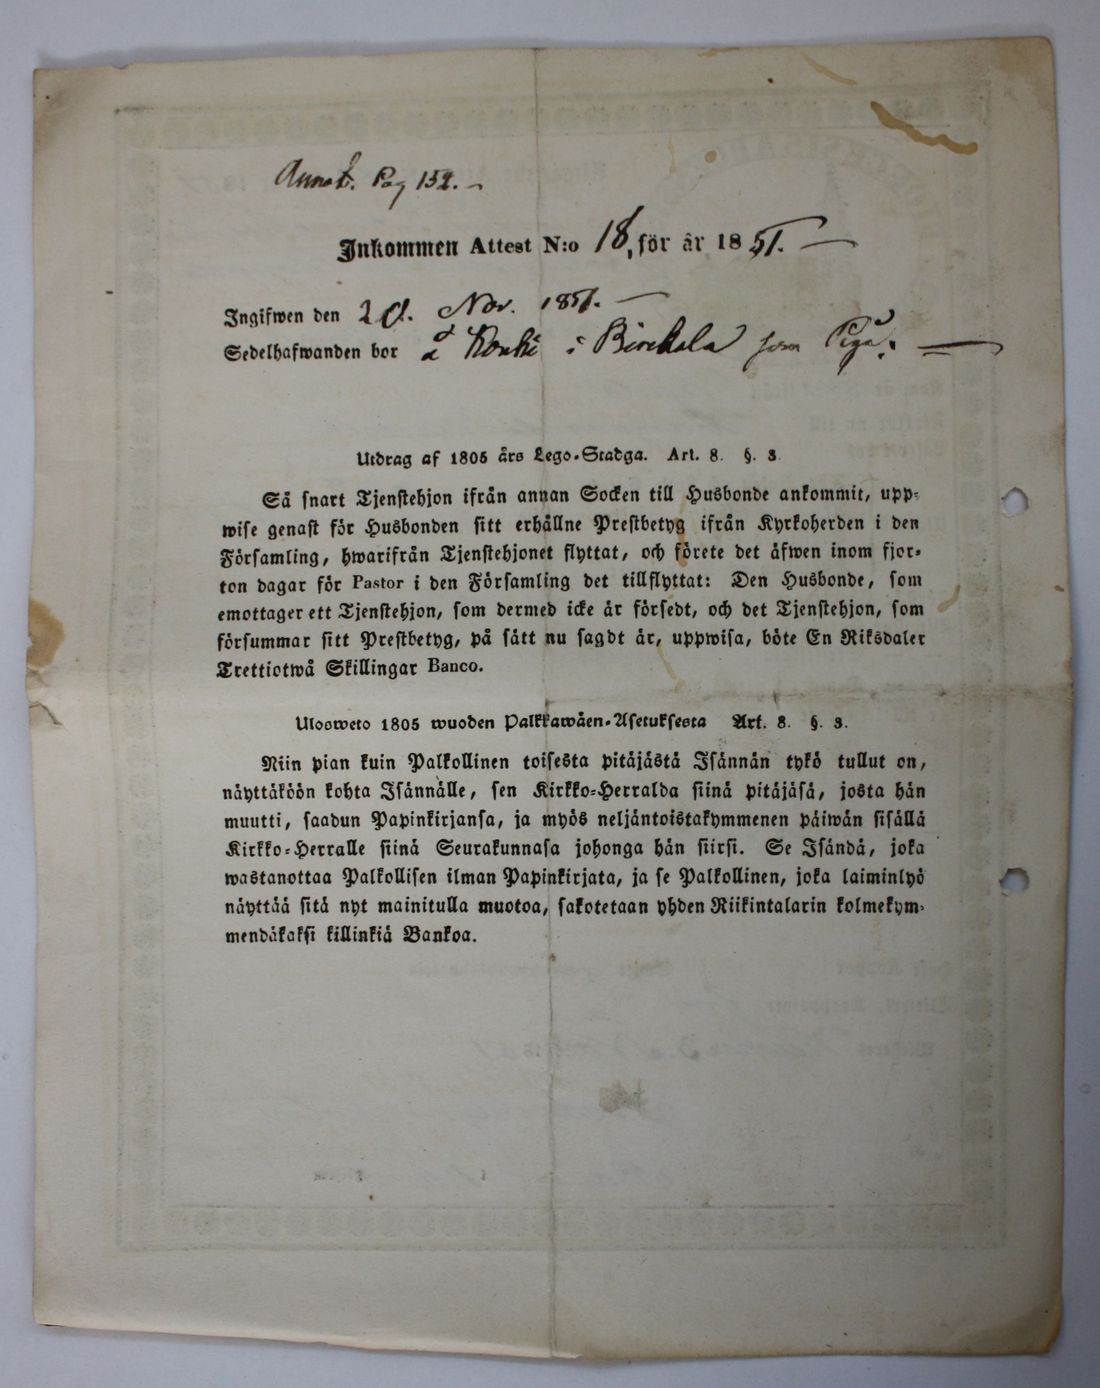 Annot. Pag 152.
Inkommen Attest N:o 18, för år 1851.
Ingifwen den 20. Nov. 1851.
Sedelhafwanden bor å Konki i Birckala som Piga.
Utdrag af 1805 års Lego-Stadga. Art. 8. §. 3.
Så snart Tjenstehjon ifrån annan Socken till Husbonde ankommit, upp-
wise genast för Husbonden sitt erhållne Prestbetyg ifrån Kyrkoherden i den
Församling, hwarifrån Tjenstehjonet flyttat, och förete det äfwen inom fjor-
ton dagar för Pastor i den Församling det tillflyttat: Den Husbonde, som
emottager ett Tjenstehjon, som dermed icke är försedt, och det Tjenstehjon, som
försummar sitt Prestbetyg, på sätt nu sagdt är, uppwisa, böte En Riksdaler
Trettiotwå Skillingar Banco.
Ulosweto 1805 wuoden Palkkawäen-Asetuksesta Art. 8. §. 3.
Niin pian kuin Palkollinen toisesta pitäjästä Isännän tykö tullut on,
näyttäköön kohta Isännälle, sen Kirkko-Herralda siinä pitäjäsä, josta hän
muutti, saadun Papinkirjansa, ja myös neljäntoistakymmenen päiwän sisällä
Kirkko-Herralle siinä Seurakunnasa johonga hän siirsi. Se Isändä, joka
wastanottaa Palkollisen ilman Papinkirjata, ja se Palkollinen, joka laiminlyö
näyttää sitä nyt mainitulla muotoa, sakotetaan yhden Riikintalarin kolmekym-
mendäkaksi killinkiä Bankoa.